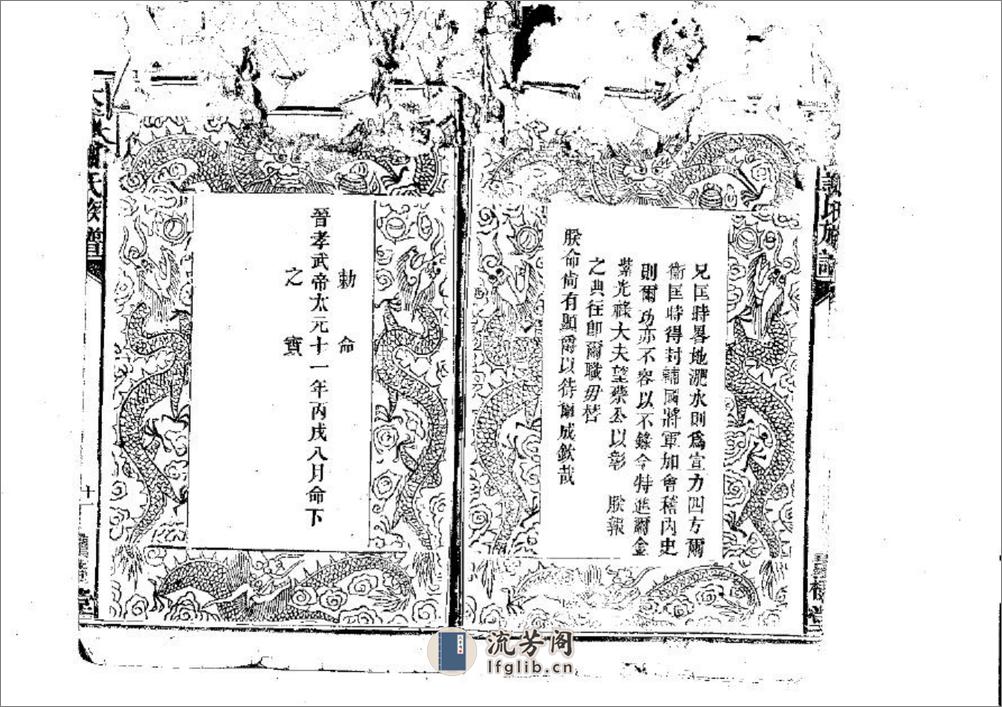 兄匡時畧地淝水則爲宣力四方爾
衞匡時得封輔國將軍加會稽內史
則爾功亦不容以不錄今特進爾金
紫光祿大夫望蔡公以彰　朕報
之典往卽爾職毋替
朕命尙有顯爵以待爾成欽哉
勅命
晉孝武帝太元十一年丙戌八月命下
之寶
氏族譜
堂
流芳阁
lfglib.cn